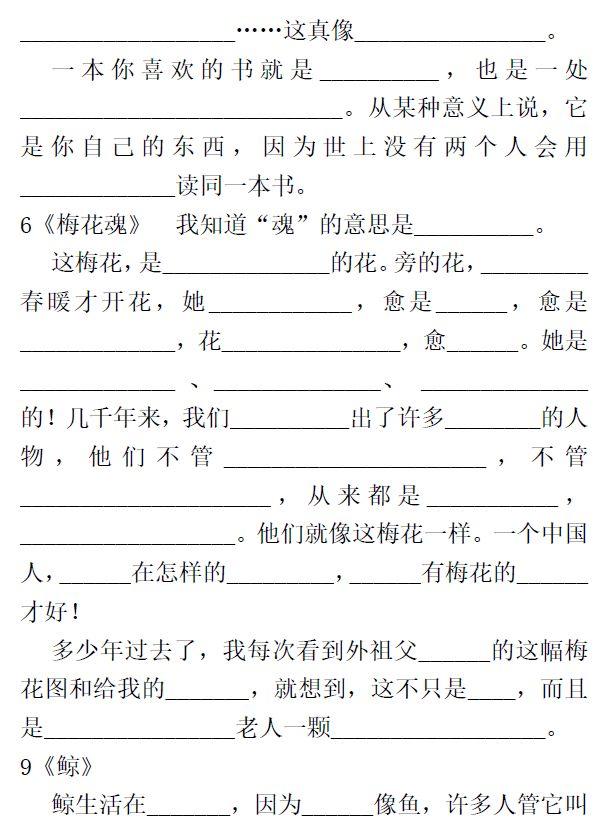 __________________……这真像________________。
一本你喜欢的书就是__________，也是一处
___________________________。从某种意义上说，它
是你自己的东西，因为世上没有两个人会用
_____________读同一本书。
6《梅花魂》 我知道“魂”的意思是__________。
这梅花，是______________的花。旁的花，_________
春暖才开花，她____________，愈是______，愈是
_____________，花_______________，愈______。她是
_____________、______________、______________
的！几千年来，我们__________出了许多________的人
物，他们不管______________________，不管
_____________________，从来都是___________，
__________________。他们就像这梅花一样。一个中国
人，______在怎样的_________，______有梅花的______
才好！
多少年过去了，我每次看到外祖父______的这幅梅
花图和给我的_______，就想到，这不只是____，而且
是________________老人一颗__________________。
9《鲸》
鲸生活在_______，因为______像鱼，许多人管它叫